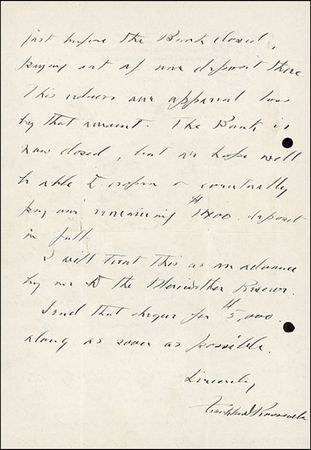 just before the Bank closed,
paying out of our deposit there
This reduces our apparent loss
by that amount. The Bank is
now closed, but we hope will
be able to reopen & eventually
pay our remaining $1400. deposit
in full.
I will treat this as an advance
by me to the Meriwether Reserve.
Send that cheque for $5,000.
along as soon as possible.
Sincerely,
Franklin D Roosevelt